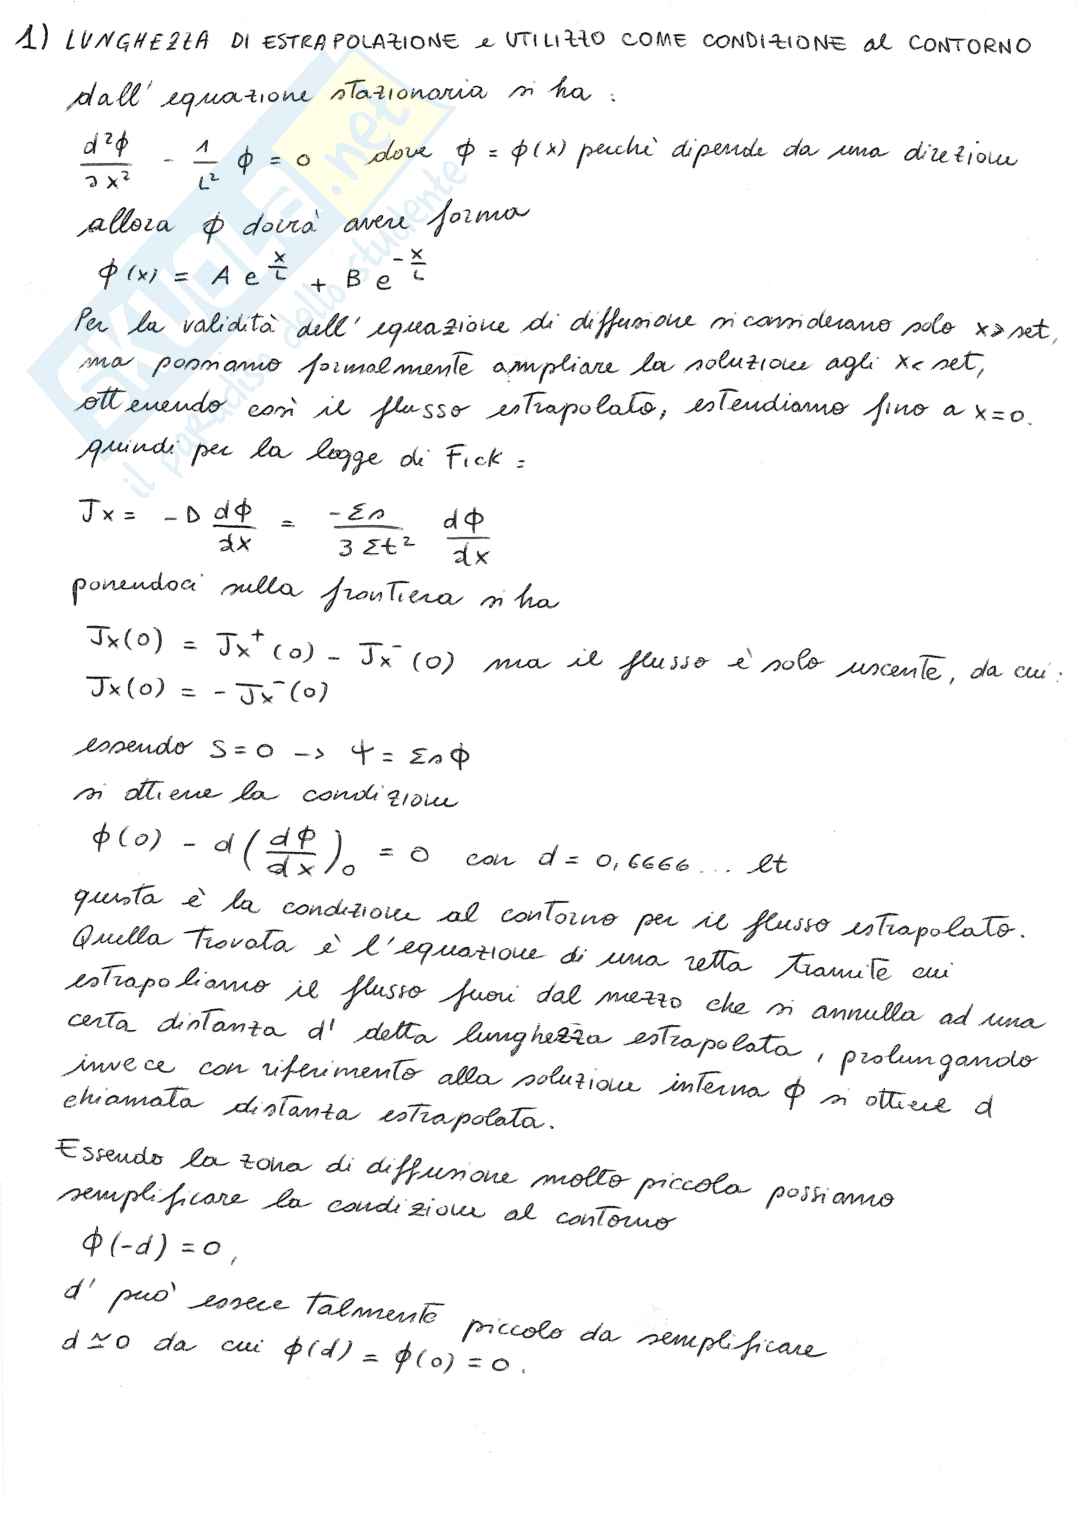 1) LUNGHEZZA DI ESTRAPOLAZIONE e UTILIZZO COME CONDIZIONE al CONTORNO
dall' equazione stazionaria si ha :
d²ϕ/∂x² - 1/L² ϕ = 0 dove ϕ = ϕ(x) perchè dipende da una direzione
allora ϕ dovrà avere forma
ϕ(x) = A e^{x/L} + B e^{-x/L}
Per la validità dell' equazione di diffusione si considerano solo x > set,
ma possiamo formalmente ampliare la soluzione agli x < set,
ottenendo così il flusso estrapolato, estendiamo fino a x=0.
quindi per la legge di Fick :
Jx = -D dϕ/dx = -Σs/3Σt² dϕ/dx
ponendoci sulla frontiera si ha
Jx(0) = Jx⁺(0) - Jx⁻(0) ma il flusso è solo uscente, da cui :
Jx(0) = - Jx⁻(0)
essendo S=0 -> Ψ = Σsϕ
si ottiene la condizione
ϕ(0) - d (dϕ/dx)₀ = 0 con d = 0,6666... lt
questa è la condizione al contorno per il flusso estrapolato.
Quella trovata è l'equazione di una retta tramite cui
estrapoliamo il flusso fuori dal mezzo che si annulla ad una
certa distanza d' detta lunghezza estrapolata, prolungando
invece con riferimento alla soluzione interna ϕ si ottiene d
chiamata distanza estrapolata.
Essendo la zona di diffusione molto piccola possiamo
semplificare la condizione al contorno
ϕ(-d) = 0,
d' può essere talmente piccolo da semplificare
d ≃ 0 da cui ϕ(d) = ϕ(0) = 0.
SKUOLA.net
il paradiso dello studente